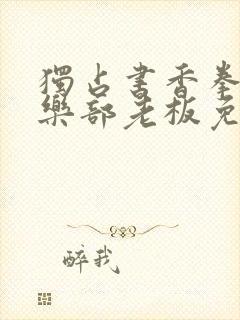 獨占書香拳
樂部老板免
醉我